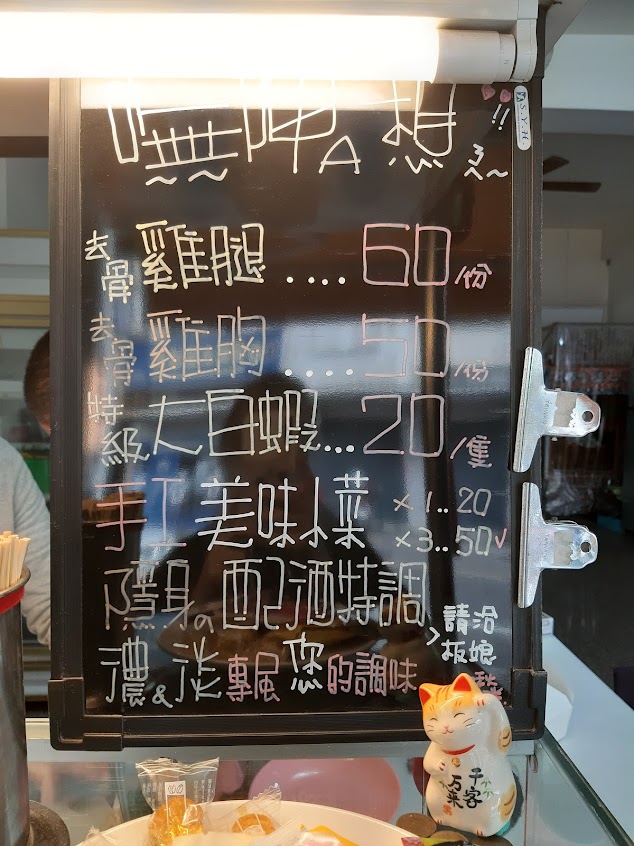 嘸呷A想ㄟ~!!
去骨雞腿....60/份
去骨雞胸....50/份
特級大白蝦...20/隻
手工美味小菜 ×1..20
×3..50✓
隱身の配酒特調
請洽板娘
濃&淡專屬您的調味
千客万来